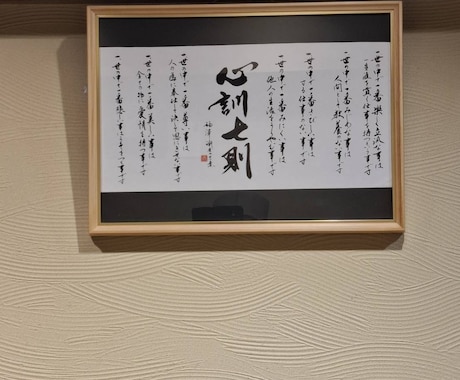 一世の中で一番楽しく立派な事は
一生涯を貫く仕事を持つという事です
一世の中で一番みじめな事は
人間として教養のない事です
一世の中で一番さびしい事は
する仕事のない事です
一世の中で一番みにくい事は
他人の生活をうらやむ事です
心訓七則
福澤諭吉
一世の中で一番尊い事は
人の為に奉仕し決して恩にきせない事です
一世の中で一番美しい事は
全ての物に愛情を持つ事です
一世の中で一番悲しい事はうそをつく事です